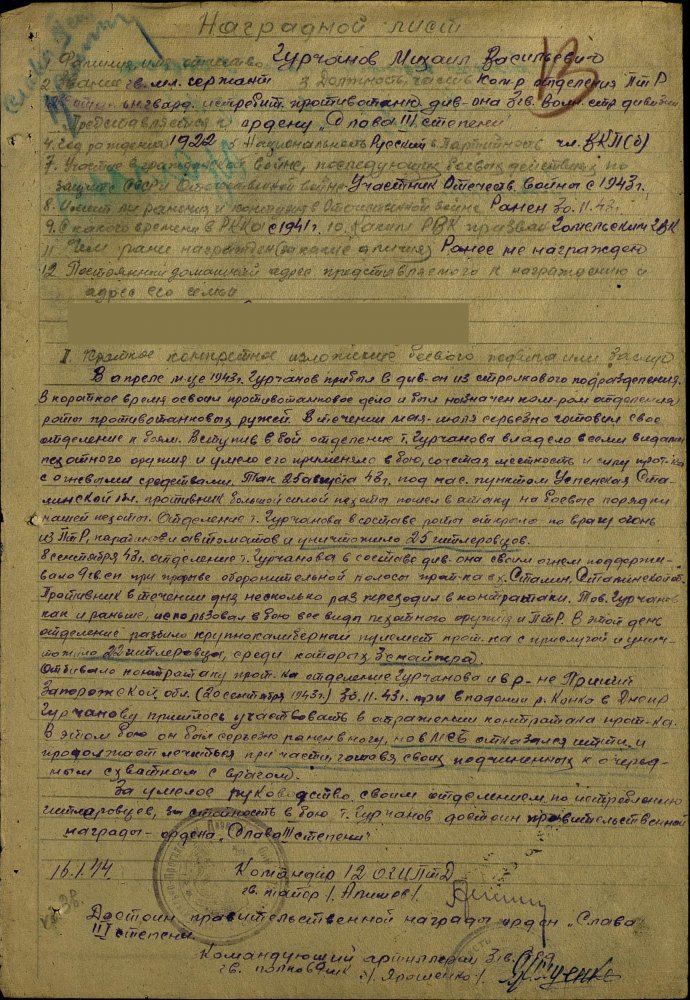 Наградной лист
1. Фамилия имя отчество Гурчанов Михаил Васильевич
2. Звание гв. мл. сержант 3. Должность, часть Ком-р отделения ПТР
гвард. истребит. противотанк. див-она 3 гв. стр. дивизии
Представляется к ордену „Слава III степени"
4. Год рождения 1922 5. Национальность Русский 6. Партийность чл. ВКП(б)
7. Участие в гражданской войне, последующих боевых действиях по
защите СССР и Отечественной войне Участник Отечеств. войны с 1943 г.
8. Имеет ли ранения и контузии в Отечественной войне Ранен 30.11.43 г.
9. С какого времени в РККА с 1941 г. 10. Каким РВК призван Гомельским ГВК
11. Чем ранее награжден (за какие отличия) Ранее не награжден
12. Постоянный домашний адрес представляемого к награждению и
адрес его семьи
I. Краткое конкретное изложение боевого подвига или заслуг
В апреле м-це 1943 г. Гурчанов прибыл в див-он из стрелкового подразделения.
В короткое время освоил противотанковое дело и был назначен ком-ром отделения
роты противотанковых ружей. В течении мая-июля серьезно готовил свое
отделение к боям. Вступив в бой отделение т. Гурчанова владело всеми видами
пехотного оружия и умело его применяло в бою, сочетая местность и силу прот-ка
с огневыми средствами. Так 25 августа 43 г. под нас. пунктом Успенская Ста-
линской обл. противник большой силой пехоты пошел в атаку на боевые порядки
нашей пехоты. Отделение т. Гурчанова в составе роты открыло по врагу огонь
из ПТР, карабинов и автоматов и уничтожило 25 гитлеровцев.
8 сентября 43 г. отделение т. Гурчанова в составе див-она своим огнем поддержи-
вало при прорыве оборонительной полосы прот-ка в Сталин, Сталинской об.
Противник в течении дня несколько раз переходил в контратаки. Тов. Гурчанов
как и раньше, использовал в бою все виды пехотного оружия и ПТР. В этот день
отделение разбило крупнокалиберный пулемет прот-ка с прислугой и унич-
тожило 22 гитлеровца, среди которых
Отбивало контратаку прот-ка отделение Гурчанова и в р-не Пришиб
Запорожской обл. (20 сентября 1943 г.) 30.11.43 г. при впадении р. Конка в Днепр
Гурчанову пришлось участвовать в отражении контратаки прот-ка.
В этом бою он был серьезно ранен в ногу, но в МСБ отказался итти, и
продолжает лечиться при части, готовя своих подчиненных к очеред-
ным схваткам с врагом.
За умелое руководство своим отделением по истреблению
гитлеровцев, за стойкость в бою т. Гурчанов достоин правительственной
награды - ордена „Слава III степени"
16.1.44. Командир 12 ОГИПТД
гв. майор /Акимов/
Достоин правительственной награды орден „Слава
III степени.
Командующий артиллерии 3 гв.
гв. полковник /Ярошенко/